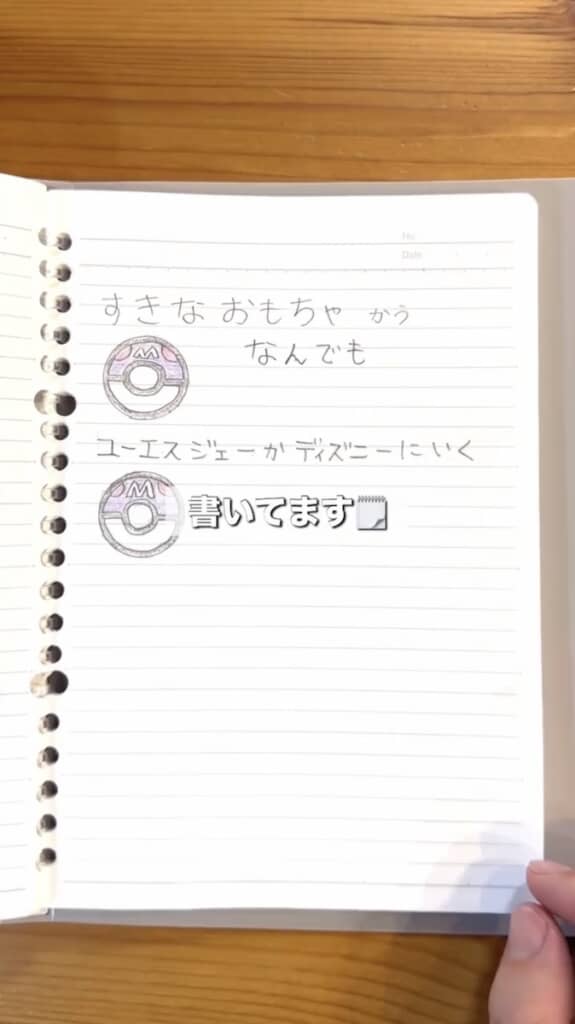 No.
Date
すきな おもちゃ かう
なんでも
M
ユーエスジェーか ディズニーにいく
M
書いてます